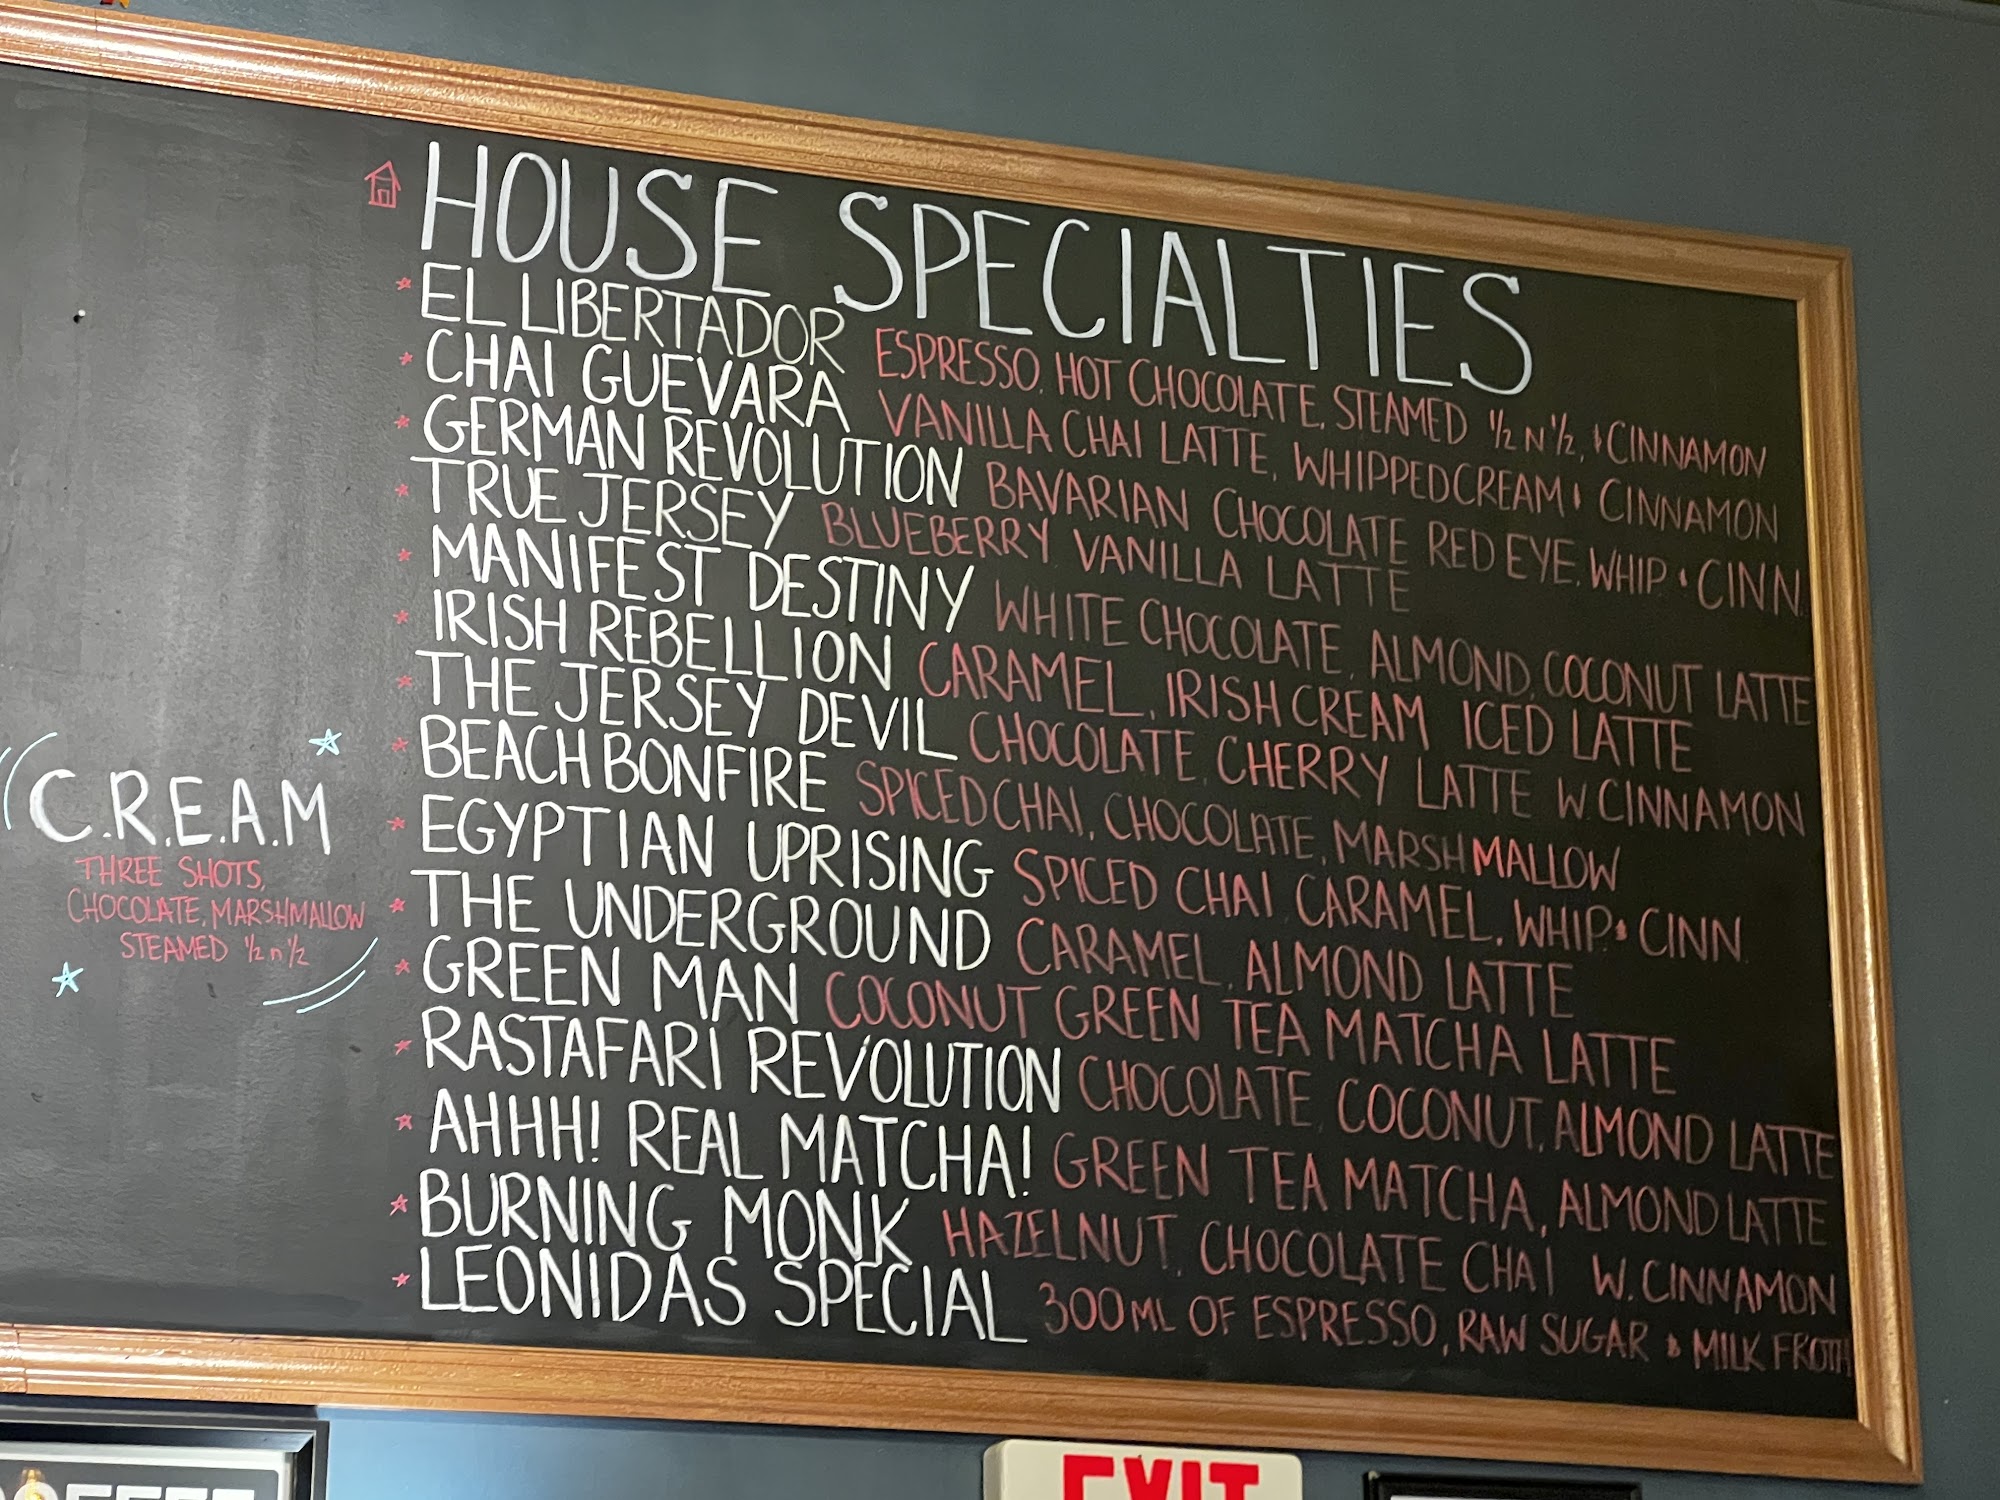 HOUSE SPECIALTIES
EL LIBERTADOR ESPRESSO, HOT CHOCOLATE, STEAMED 1/2 N 1/2, & CINNAMON
CHAI GUEVARA VANILLA CHAI LATTE, WHIPPED CREAM & CINNAMON
GERMAN REVOLUTION BAVARIAN CHOCOLATE RED EYE, WHIP & CINN.
TRUE JERSEY BLUEBERRY VANILLA LATTE
MANIFEST DESTINY WHITE CHOCOLATE, ALMOND, COCONUT LATTE
IRISH REBELLION CARAMEL, IRISH CREAM ICED LATTE
THE JERSEY DEVIL CHOCOLATE, CHERRY LATTE W. CINNAMON
BEACH BONFIRE SPICED CHAI, CHOCOLATE, MARSHMALLOW
EGYPTIAN UPRISING SPICED CHAI, CARAMEL, WHIP & CINN.
THE UNDERGROUND CARAMEL, ALMOND LATTE
GREEN MAN COCONUT GREEN TEA MATCHA LATTE
RASTAFARI REVOLUTION CHOCOLATE, COCONUT, ALMOND LATTE
AHHH! REAL MATCHA! GREEN TEA MATCHA, ALMOND LATTE
BURNING MONK HAZELNUT, CHOCOLATE CHAI W. CINNAMON
LEONIDAS SPECIAL 300ML OF ESPRESSO, RAW SUGAR & MILK FROTH
C.R.E.A.M
THREE SHOTS,
CHOCOLATE, MARSHMALLOW
STEAMED 1/2 n 1/2
EXIT